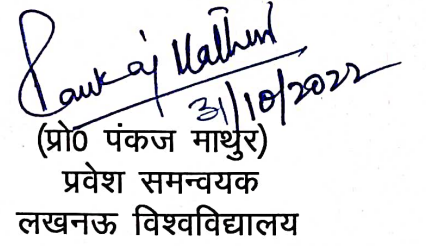 Pankaj Mathur
31/10/2022
(प्रो0 पंकज माथुर)
प्रवेश समन्वयक
लखनऊ विश्वविद्यालय